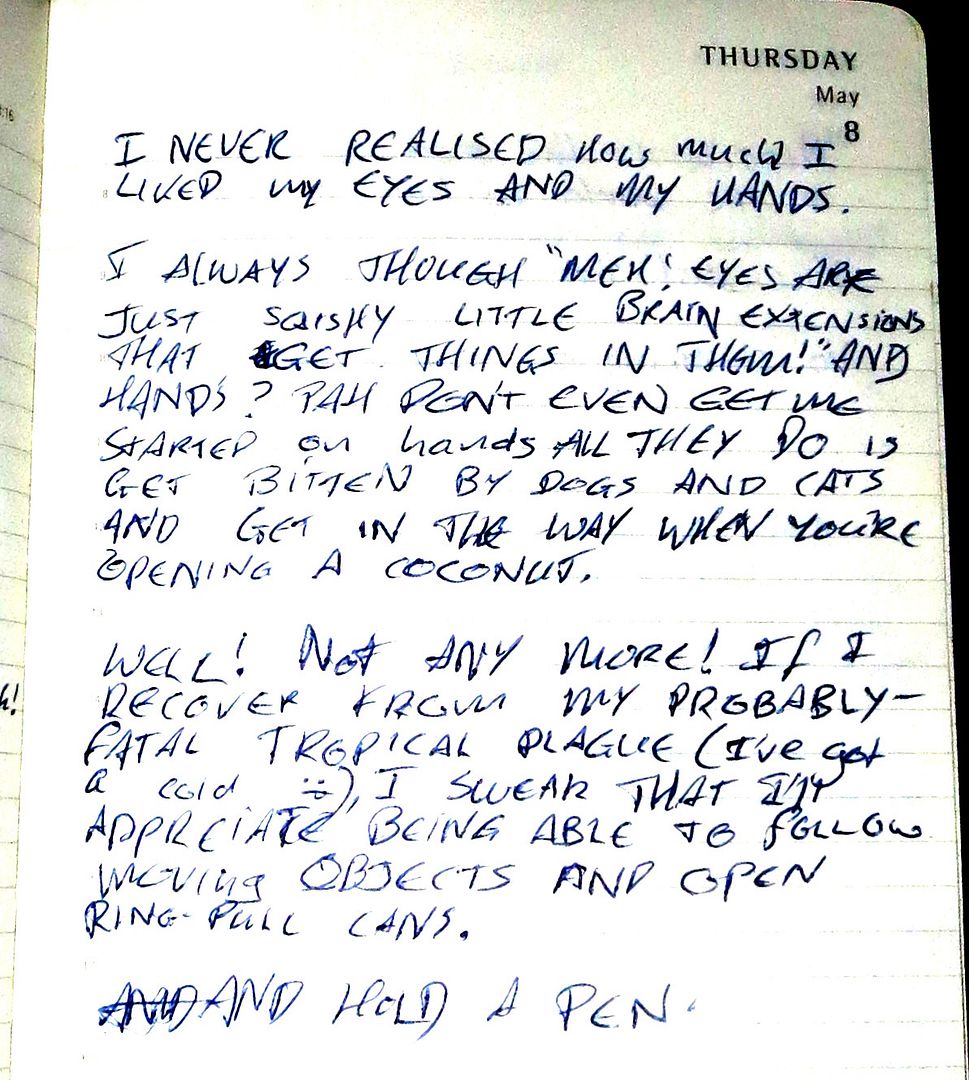 THURSDAY
May
8
I NEVER REALISED How much I
LIKED my EYES AND MY HANDS.
I ALWAYS THOUGH "MEH! EYES ARE
JUST SQISHY LITTLE BRAIN EXTENSIONS
THAT GET THINGS IN THEM!" AND
HANDS? PAH DON'T EVEN GET ME
STARTED on hands ALL THEY DO IS
GET BITTEN BY DOGS AND CATS
AND GET IN THE WAY WHEN YOU'RE
OPENING A COCONUT.
WELL! Not ANY MORE! If I
RECOVER FROM MY PROBABLY-
FATAL TROPICAL PLAGUE (I've got
a cold ), I SWEAR THAT I'll
APPRCIATE BEING ABLE TO follow
moving OBJECTS AND OPEN
RING-PULL CANS.
AND AND HOLD A PEN.
h!